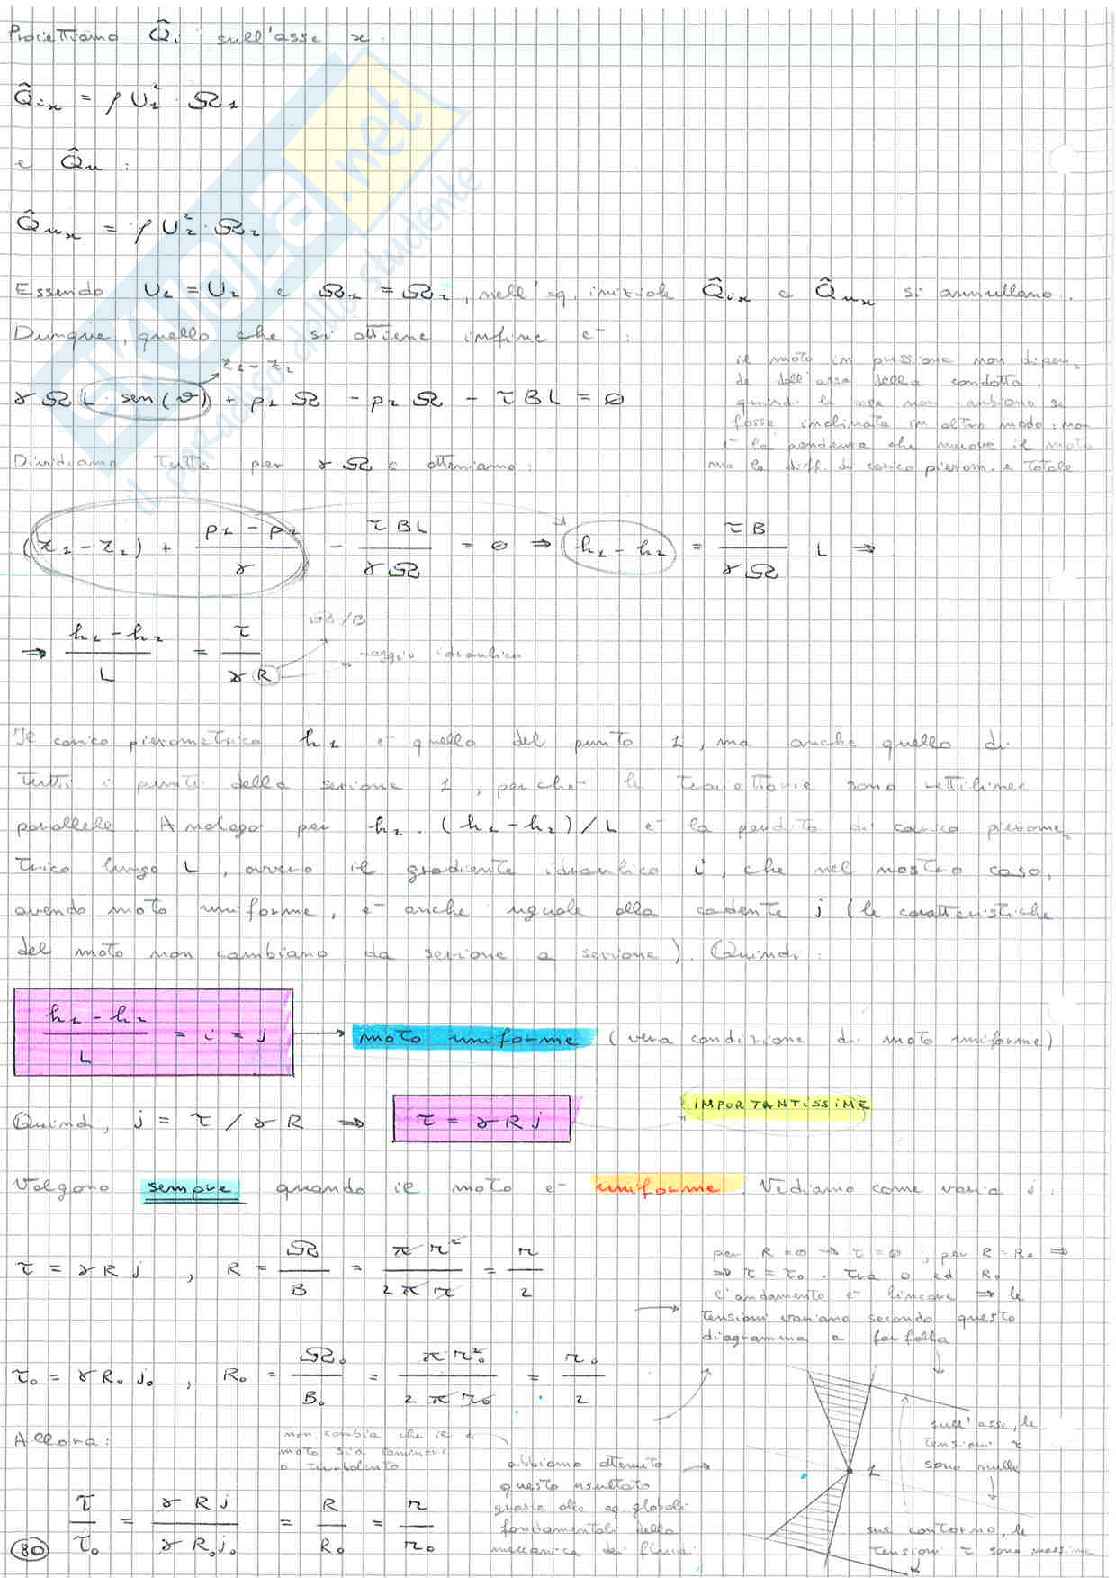 Proiettiamo Q̂i sull'asse x.
Q̂ix = ρ U₁² · Ω₁
e Q̂u :
Q̂ux = ρ U₂² · Ω₂
Essendo U₁ = U₂ e Ω₁ = Ω₂, nell'eq. iniziale Q̂ix e Q̂ux si annullano.
Dunque, quello che si ottiene infine è:
z₁ - z₂
γ Ω L · sen(ϑ) + p₁ Ω - p₂ Ω - τ B L = 0
il moto in pressione non dipen
de dall'asse della condotta
quindi le cose non cambiano se
fosse inclinata in altro modo: non
è la pendenza che muove il moto
ma la diff. di carico piezom. e totale
Dividiamo tutto per γ Ω e otteniamo:
(z₁ - z₂) + (p₁ - p₂) / γ - τ B L / γ Ω = 0 ⇒ h₁ - h₂ = τ B / γ Ω L ⇒
⇒ (h₁ - h₂) / L = τ / γ R
Ω/B
raggio idraulico
Il carico piezometrico h₁ è quello del punto 1, ma anche quello di
tutti i punti della sezione 1, perché le traiettorie sono rettilinee
parallele. Analogo per h₂. (h₁ - h₂)/L è la perdita di carico piezome
trico lungo L, ovvero il gradiente idraulico i, che nel nostro caso,
avendo moto uniforme, è anche uguale alla cadente j (le caratteristiche
del moto non cambiano da sezione a sezione). Quindi:
(h₁ - h₂) / L = i = j → moto uniforme (vera condizione di moto uniforme)
Quindi, j = τ / γ R ⇒ τ = γ R j
IMPORTANTISSIME
Valgono sempre quando il moto è uniforme. Vediamo come varia j:
τ = γ R j , R = Ω / B = π r² / 2 π r = r / 2
per R = 0 → τ = 0, per R = R₀ ⇒
⇒ τ = τ₀. Tra 0 ed R₀
l'andamento è lineare ⇒ le
tensioni variano secondo questo
diagramma a farfalla
τ₀ = γ R₀ j₀ , R₀ = Ω₀ / B₀ = π r₀² / 2 π r₀ = r₀ / 2
Allora:
non cambia che il
moto sia laminare
o turbolento
abbiamo ottenuto
questo risultato
grazie alle eq. globali
fondamentali della
meccanica dei fluidi
sull'asse, le
tensioni τ
sono nulle
sul contorno, le
tensioni τ sono massime
τ / τ₀ = γ R j / γ R₀ j₀ = R / R₀ = r / r₀
80
.net
studente